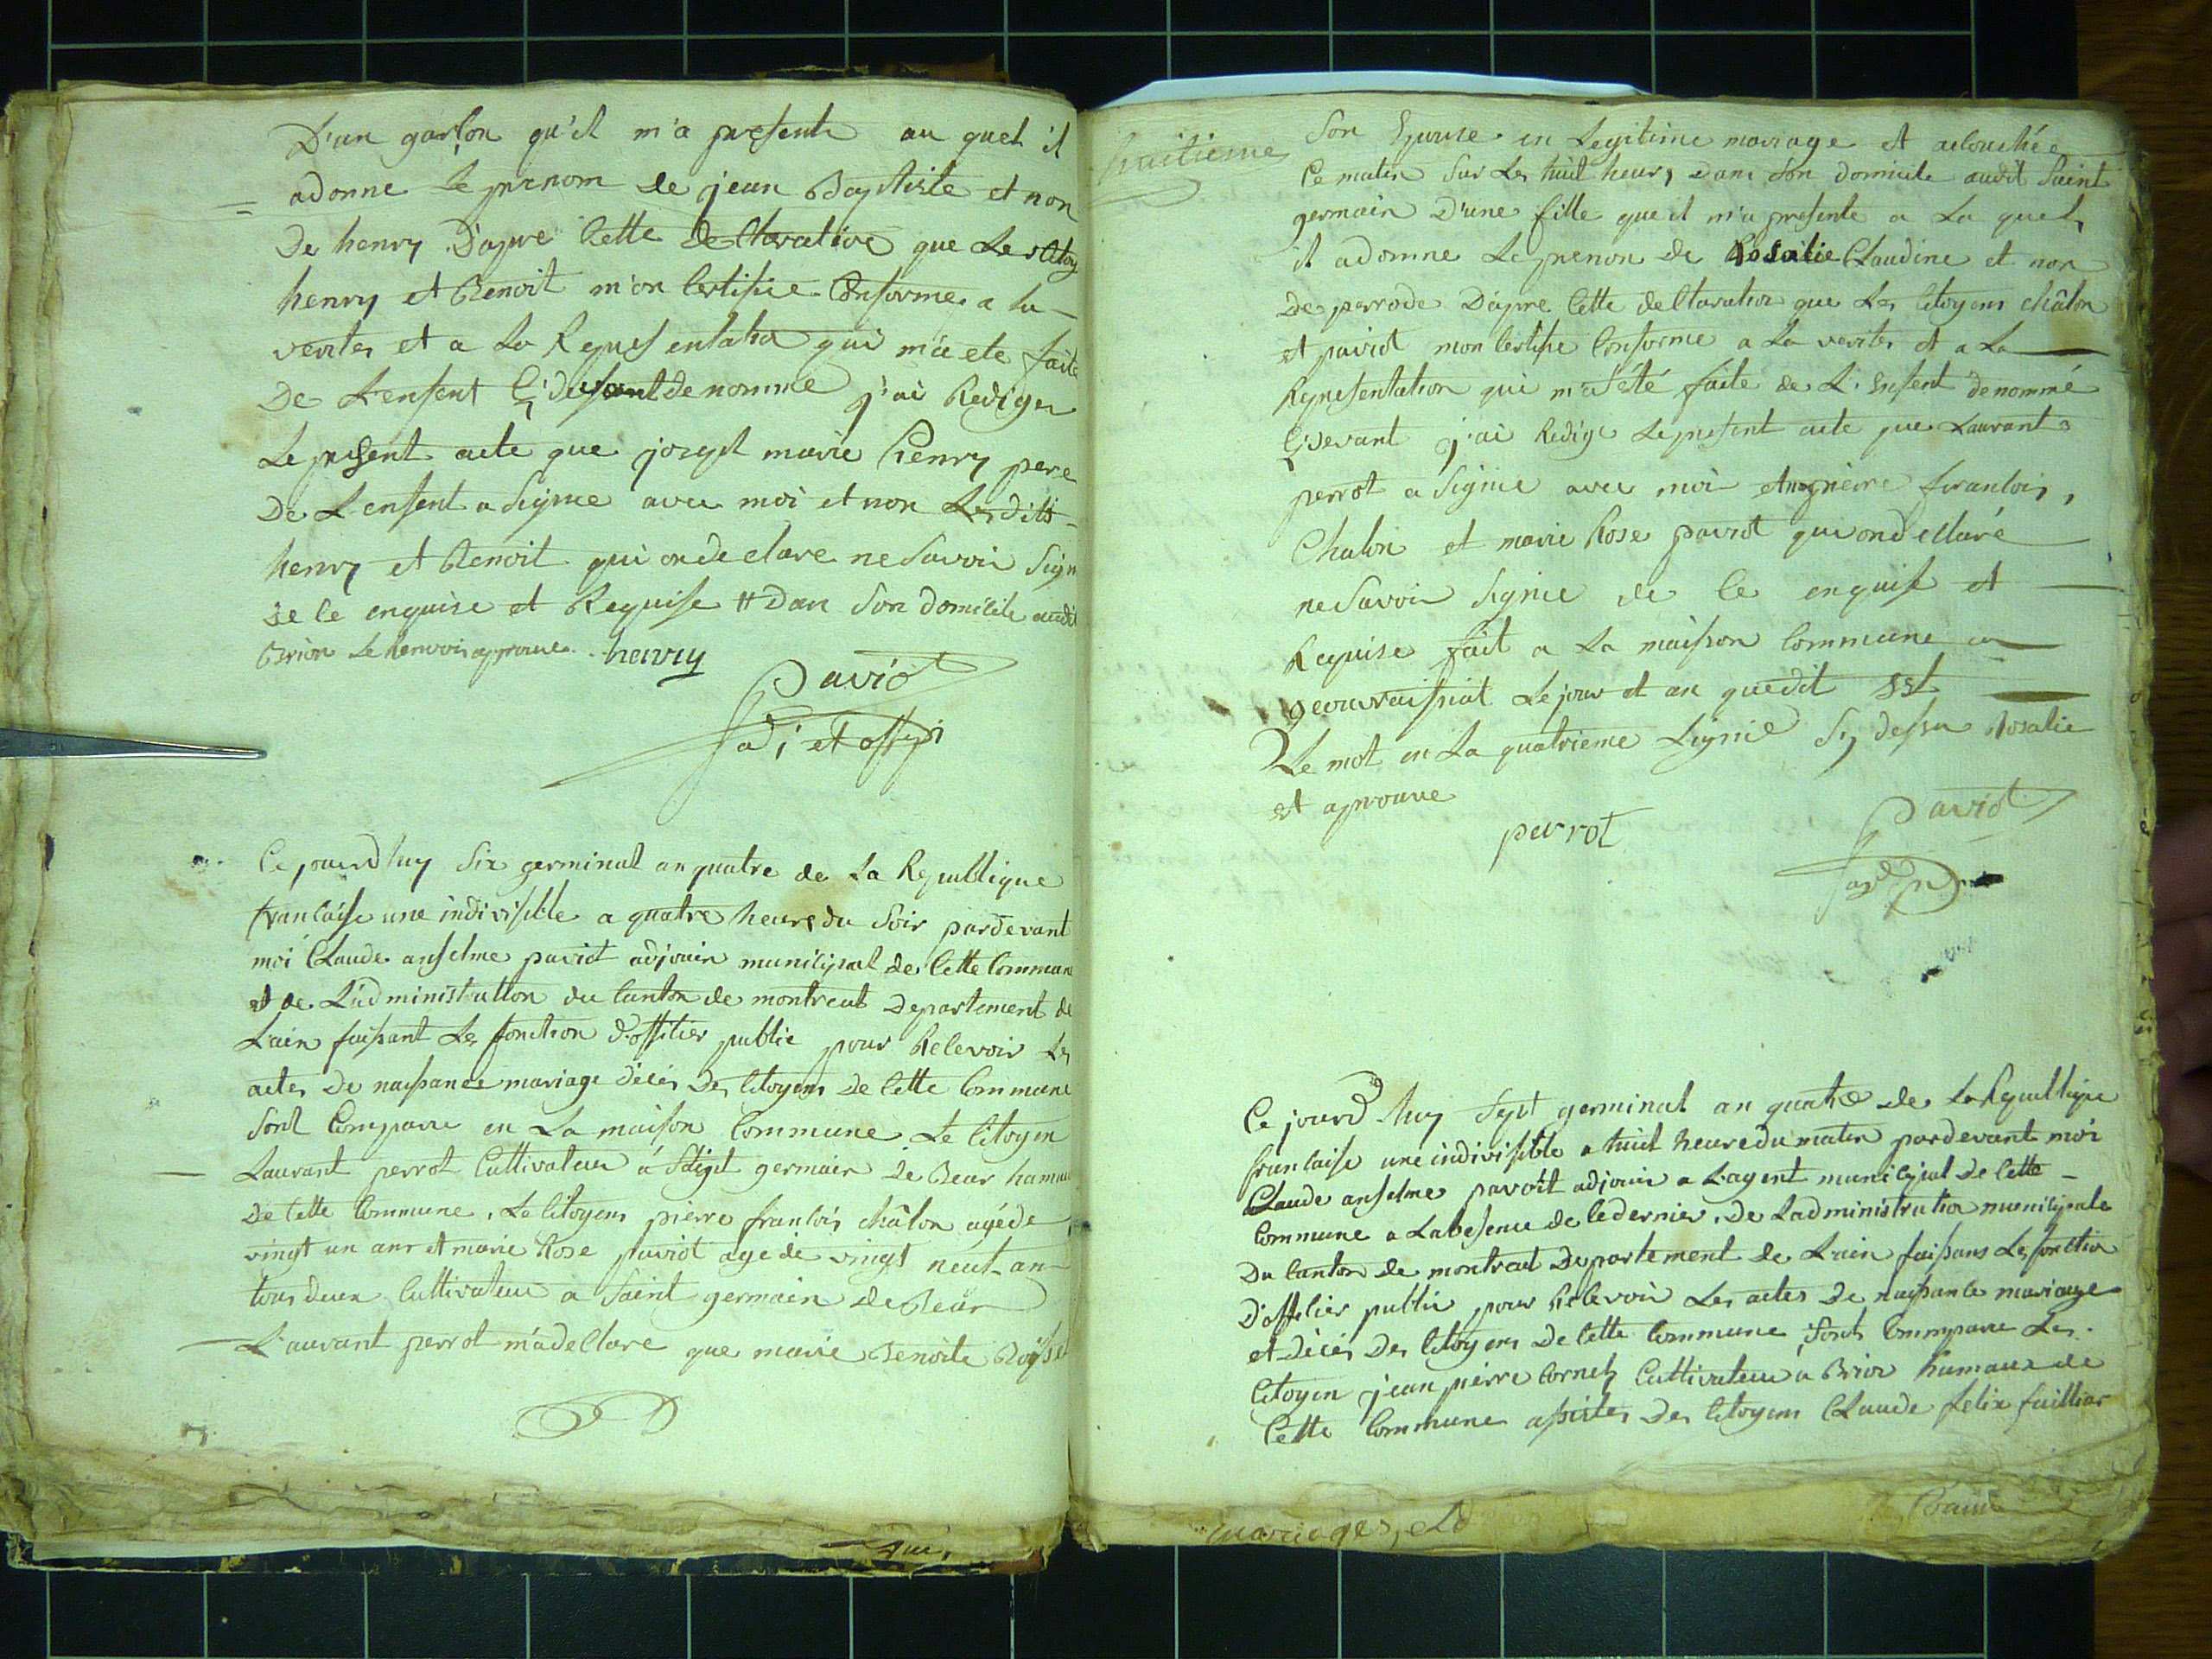 D'un garçon qu'il m'a presente au quel il
adonne le prenom de jean Baptiste et non
De henry D'apre Cette declarative que Les Citoy
henry et Benoit m'on Certifice Conforme a la
verites et a La Representation qui m'a ete faite
De L'enfent Cy devant denomme j'ai Rediger
Le present acte que joseph marie henry pere
De L'enfent a Signe avec moi et non Lesdits
henry et Benoit qui on declare ne Savoir Sign
de Ce enquise et Requise # Dan Son Domicile audit
Brion Le Renvoi approuve henry
Paviot
adj et off p
Ce jourd huy Six germinal an quatre de La Republique
francaise une indivisible a quatre heures du Soir pardevant
moi Claude anselme paviot adjouin municipal de Cette Commune
et de L'administration du Canton de montreal Departement de
L'ain faisant Les fonction d'officier public pour Recevoir Les
actes De naissance mariage déces Des Citoyens De Cette Commune
Sont Comparu en La maison Commune Le Citoyen
Laurant perrot Cultivateur á St germain de Bear hamau
De Cette Commune, Le Citoyens pierre francois châlon agé de
vingt un ans et marie Rose paviot age de vingt neuf an
tous deux Cultivateur a Saint germain de Bear
Laurant perrot m'a declare que marie Benoite
qui,
huitieme
Son Epouse en Legitime mariage et acouchée
Ce matin Sur Les huit heures Dans Son Domicile audit Saint
germain D'une fille que il m'a presente a La quel,
il adonne Le prenon de Rosalie Claudine et non
De perrode D'apre Cette declaration que Les Citoyens châlon
et paviot mon Certifie Conforme a La verites et a La
Representation qui m'a été faite de L'Enfent denommé
Cy devant j'ai Redige Le present acte que Laurant
perrot a Signe avec moi et non pierre francois,
Chalon et marie Rose paviot qui on declaré
ne Savoir Signe de Ce enquise et
Requise fait a La maison Commune a
geovraissiat Le jour et an quedit est
Le mot en La quatrieme Ligne Sy dessu Rosalie
et aprouve
perrot
Paviot
Ce jourd huy Sept germinal an quatre de La Republique
francaise une indivisible a huit heure du matin pardevant moi
Claude anselme paviot adjouin a L'agent municipal De Cette
Commune a L'absence de Ce dernier, De L'administration municipale
Du Canton de montreal Departement de L'ain faisans Les fonction
D'officier public pour Recevoir Les actes De naissance mariage
et Déces Des Citoyens De Cette Commune, Sont Comparu Les
Citoyen jean pierre Cornet Cultivateur a Brion hamaux de
Cette Commune assistes Des Citoyens Claude felix
mariages, et d